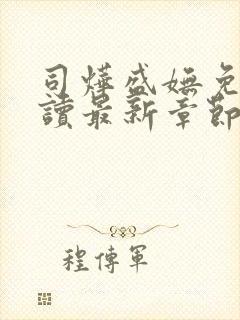 司燁盛嫵免
讀最新章節
程傳軍